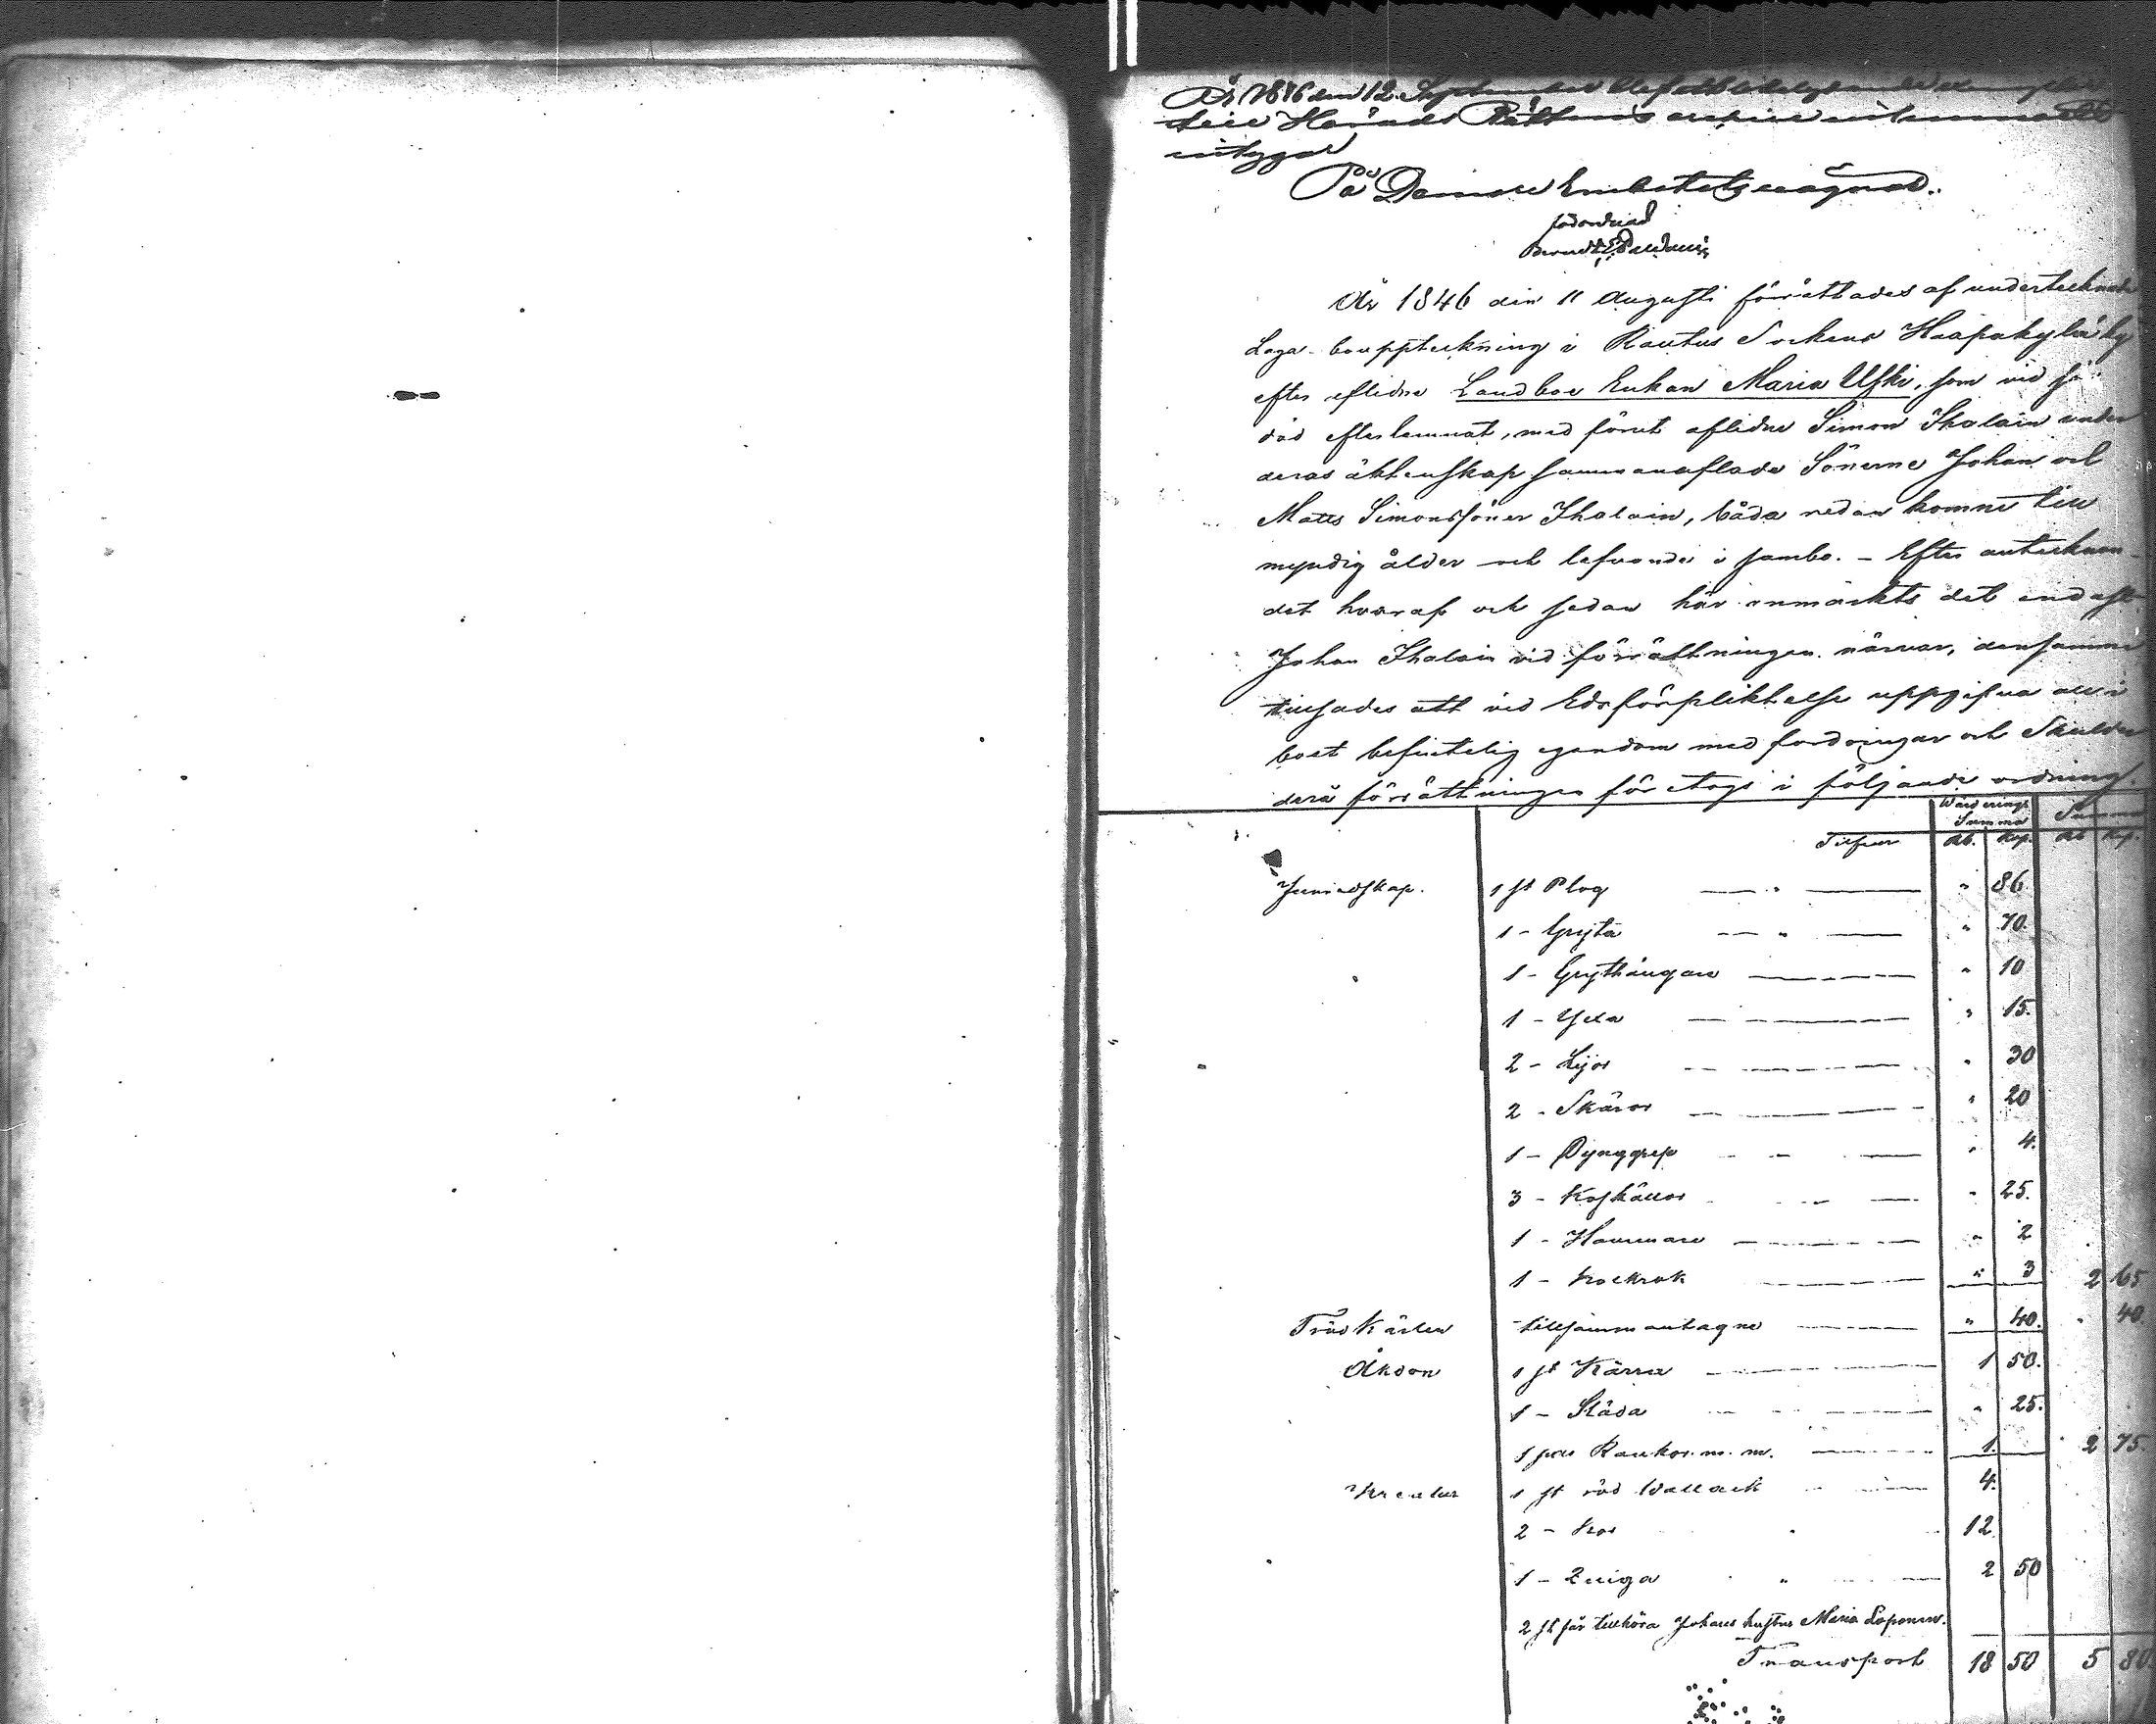 År 1846 den 12 September
till Härads Rättens archiv
intygar
På Domare Embetets vägnar.
förordnad
År 1846 den 11 Augusti förrättades af undertecknade
Laga bouppteckning i Rautus Sockens Haapakylä by
efter aflidne Landboe Enkan Maria Uski, som vid sin
död efterlemnat, med förut aflidne Simon Ihalain under
deras äktenskap sammanaflade Sönerne Johan och
Matts Simonssöner Ihalain, båda redan komne till
myndig ålder och lefvande i sambo. - Efter antecknan-
det hvaraf och sedan här anmärkts det endast
Johan Ihalain vid förrättningen närvar, densamme
tillsades att vid Edsförpliktelse uppgifva all i
boet befintelig egendom med fordringar och Skulder
derå förrättningen företogs i följande ordning.
Wärderings Summa Summa
Silfver Rb. Kop. Rb Kop.
Jernredskap. 1 st Plog " 86
1 - Gryta " 70.
1 - Grythängare " 10
1 - Yxa " 15.
2 - Lijor " 30
2 - Skäror " 20
1 - Dynggrep " 4.
3 - Koskällor " 25.
1 - Hammare " 2
1 - Kockrok " 3 2 65
Träd Kärlen tillsammantagne " 40. " 40.
Åkdon 1 st Kärra 1 50.
1 - Släda " 25.
1 par Rankor m. m. 1. 2 75
Kreatur 1 st röd Wallack 4.
2 - Kor 12
1 - Quiga " 2 50
2 st får tillhöra Johans hustru Maria Loponen.
Transport 18 50 5 80